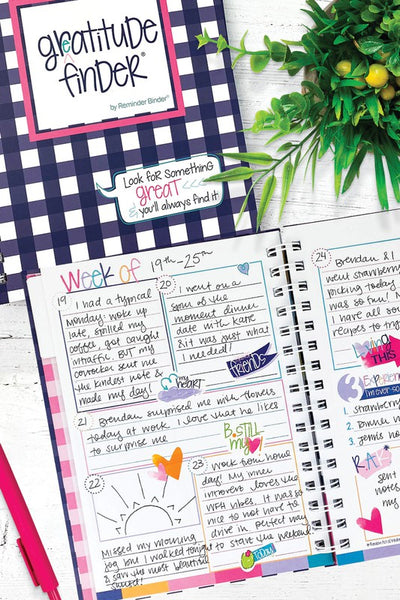 greatitude
finder®
by Reminder Binder®
Look for Something
great
& you'll always find it
Week of 19th-25th
19 I had a typical
Monday: woke up
late, spilled my
coffee, got caught
in traffic. BUT my
coworker sent me
the kindest note &
made my day!
my heart
20 I went on a
spur of the
moment dinner
date with Kate
& it was just what
I needed!
friends
21 Brendan surprised me with flowers
today at work. I love that he likes
to surprise me.
B. Still
my
22
Missed my morning
jog but I walked tonight
& saw the most beautiful
sunset!
23 Work from home
day! My inner
introvert loves the
WFH vibes. It was so
nice to not have to
drive in. Perfect way
to start the weekend.
Today
24
Brendan & I
went strawberry
picking today
was so fun!
I have all
recipes to try
THIS
I'm over so
1. strawberry
2.
3. Jenn's
R.A.
sent
notes
my